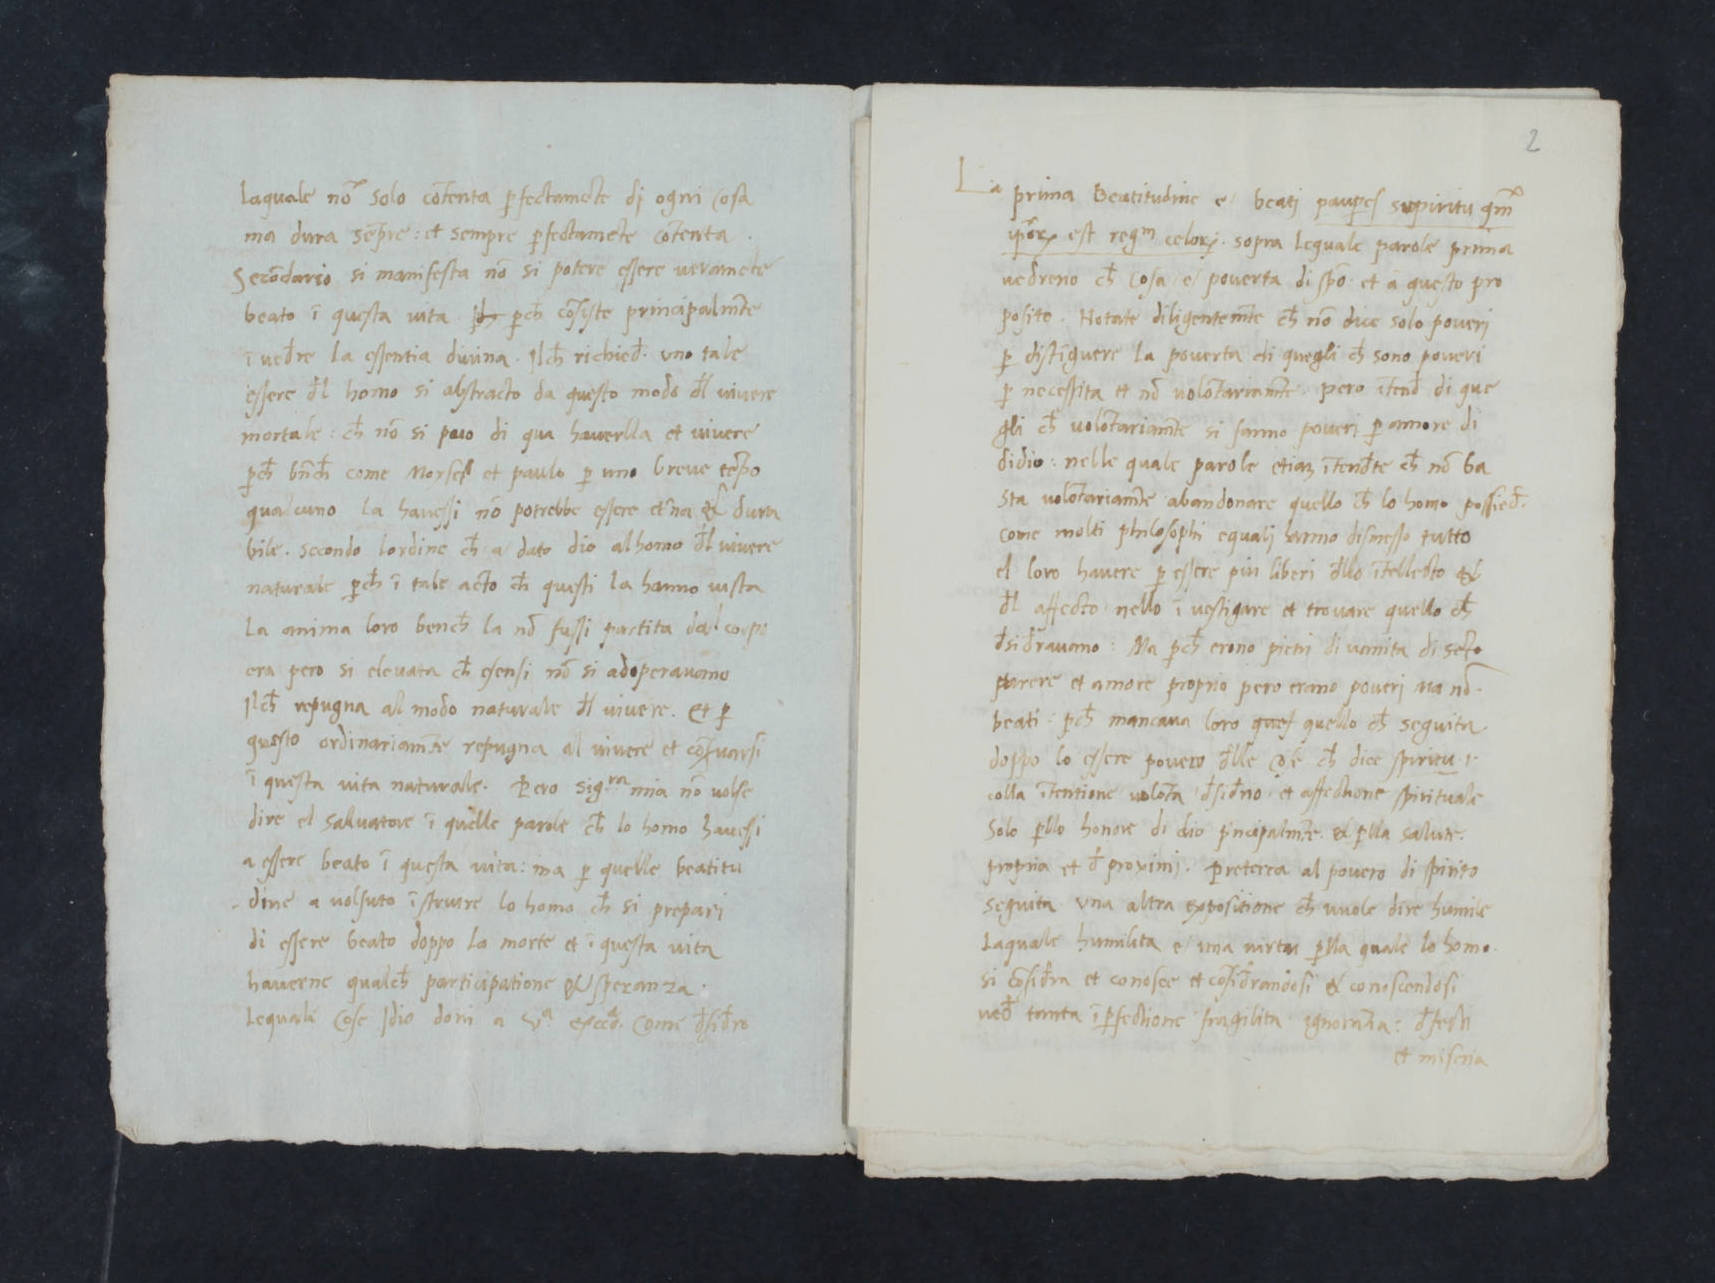 laquale nō solo cōtenta ꝑfectamēte dj ogni cosa
ma dura sēpre: et sempre ꝑfectamēte cōtenta.
Secōdario si manifesta nō si potere essere veramēte
beato ī questa vita ꝑch̄ cōsiste principalmt̄e
ī ved̄re la essentia divina. Ilch̄ richied̄. uno tale
essere d̄l homo si abstracto da questo modo d̄l vivere
mortale: ch̄ nō si puo di qua haverlla et vivere
ꝑch̄ bn̄ch̄ come Morses et paulo ꝑ uno breve tēpo
qualcuno la havessi nō potrebbe essere et̄na & dura
bile. secondo lordine ch̄ a dato dio alhomo d̄l vivere
naturale ꝑch̄ ī tale acto ch̄ questi la hanno vista
La anima loro bench̄ la nō fussi partita dal corpo
era pero si elevata ch̄ esensi nō si adoperavano
Ilch̄ repugna al modo naturale d̄l vivere. et ꝑ
questo ordinariamt̄e repugna al vivere et cōs̄varsi
ī questa vita naturale. Pero sig.ra mia nō volse
dire el salvatore ī quelle parole ch̄ lo homo havessi
a essere beato ī questa vita: ma ꝑ quelle beatitu
dine a volsuto īstruire lo homo ch̄ si prepari
di essere beato doppo la morte et ī questa vita
haverne qualch̄ participatione & speranza.
Lequali cose Idio doni a Va. excea. come d̄sid̄ro
2
La prima Beatitudine e/ beati paupes supiritu qm̄
ipōrꝝ est regm celorꝝ. sopra lequale parole prima
vedreno ch̄ cosa e/ poverta di spō. et a questo pro
posito. Notate diligentemt̄e ch̄ nō dice solo poveri
ꝑ distīguere la poverta di quegli ch̄ sono poveri
ꝑ necessita et nō volōtariamt̄e. pero ītend̄ di que
gli ch̄ volōtariamt̄e si fanno poveri ꝑ amore di
didio: nelle quale parole etiaꝫ ītend̄te ch̄ nō ba
sta volōtariamt̄e abandonare quello ch̄ lo homo possied̄.
come molti philosophi equalj hanno dismesso tutto
el loro havere ꝑ essere piu liberi d̄llo ītellecto &
d̄l affecto nello ī vestigare et trovare quello ch̄
d̄sid̄ravano: Ma ꝑch̄ erono pieni di vanita di
parere et amore proprio pero erano poveri ma nō.
beati: ꝑch̄ mancava loro quello ch̄ seguita
doppo lo essere povero d̄lle ch̄ dice spiritu .i.
colla ītentione volōta d̄sid̄rio et affectione spirituale
solo ꝑllo honore di dio pncipalmt̄e. & ꝑlla salute.
propria et d̄ proximi. Preterea al povero di spirito
seguita una altra expositione ch̄ vuole dire humile
Laquale humilita e/ una virtu ꝑlla quale lo homo.
si cōsid̄ra et conosce et cōsid̄randosi & conoscendosi
ved̄ tanta īꝑfectione fragilita ignorātia: d̄fecti
et miseria